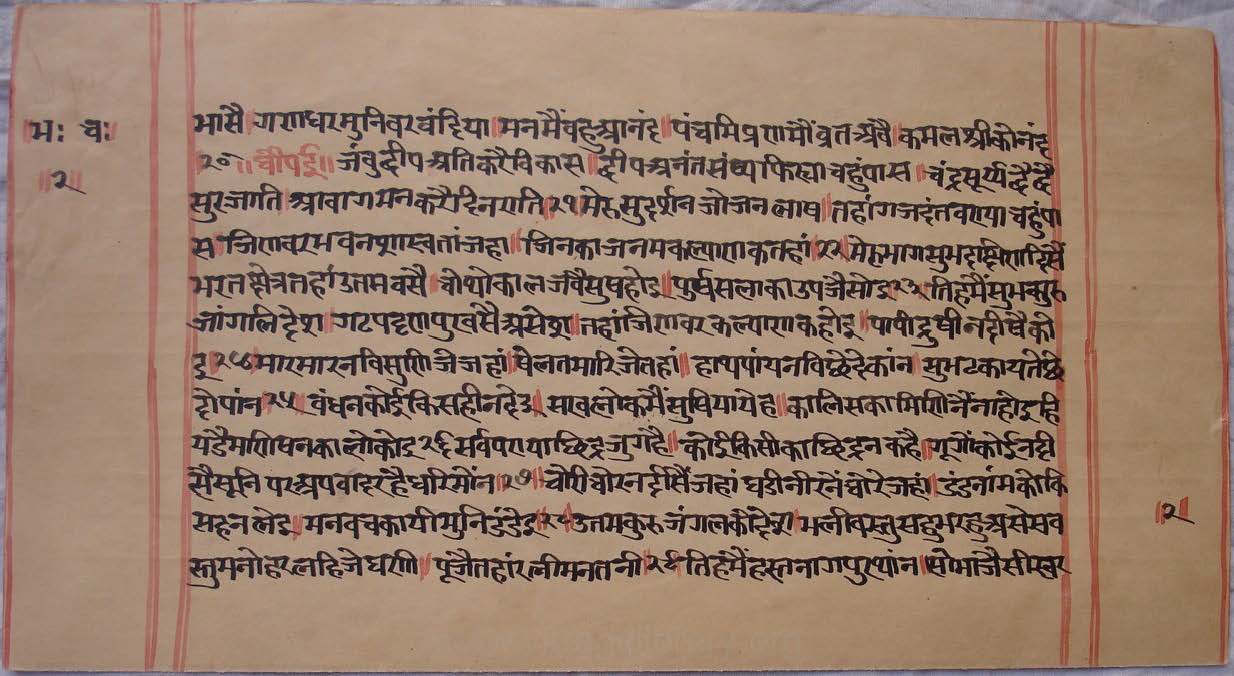 भः चः
॥२॥
भासै॥ गणधरमुनिवरवंदिया॥ मनमैंवहुआनंद॥ पंचमिप्रणमौंव्रतअषै॥ कमलश्रीकोनंद॥
२०॥ चौपई॥ जंवुदीपअतिकरैविकास॥ द्वीपअनंतसंष्यफिर्‍याचहुंपास॥ चंद्रसूर्य्यद्वैद्वै
सुरजगति॥ आवागमनकरैदिनराति॥२१॥ मेरुसुदर्शनजोजनलाष॥ तहांगजदंतवण्याचहुंपा
स॥ जिणवरभवनशास्वतांजहां॥ जिनकाजनमकल्याणकतहां॥२२॥ मेरुभागसुभदक्षिणदिसैं॥
भरतक्षेत्रतहांउतमवसै॥ चोथोकालजवैसुषहोइ॥ पुर्षसलाकाउपजैसोइ॥२३॥ तिहमैंसुभकुरु
जांगलिदेश॥ गटपटृणपुरवसैअसेश॥ तहांजिणवरकल्याणकहोइ॥ पापीदुषीनदीषैको
इ॥२४॥ मारमारनविसुणिजैजहां॥ षेलतमारिजेतहां॥ हाथपांयनविछेदेकांन॥ सुभटकायतेछे
दोपांन॥२५॥ वंधनकोईकिसहीनदेइ॥ सावलोकमैंसुषियायेह॥ कालिसकामिणिनैंनाहोइ॥ हि
यडैमाणिधनकालोकोइ॥२६॥ सर्वपरायाछिद्रजुगहै॥ कोईकिसीकाछिद्रनकहै॥ मूगोंकोईनदी
सैसूनि॥ परअपवादरहैधरिमोंन॥२७॥ चोरीचोरनदीसैंजहां॥ घडीनीरनैंचोरेजहां॥ डंडनांमकोकि
सहनलेइ॥ मनवचकायीमुनिडंडेइ॥२८॥ उतमकुरुजंगलकौदेश॥ भलीवस्तुसहुभरहुअसेस॥ व
स्तुमनोहरलहिजेघणी॥ पूजैतहांरलीमनतनी॥२९॥ तिहंमैंहस्तनागपुरथांन॥ सोभाजैसीस्वर
॥२॥